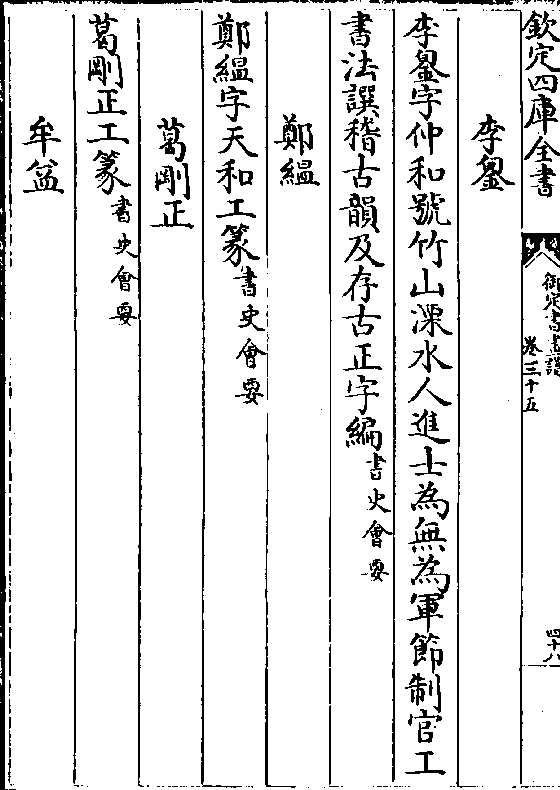 欽定四庫全書
御定書畫譜
卷三十五
四十八
李鋆
李鋆字仲和號竹山溧水人進士為無為軍節制官工
書法譔稽古韻及存古正字編書史會要
鄭縕
鄭縕字天和工篆書史會要
葛剛正
葛剛正工篆書史會要
牟益